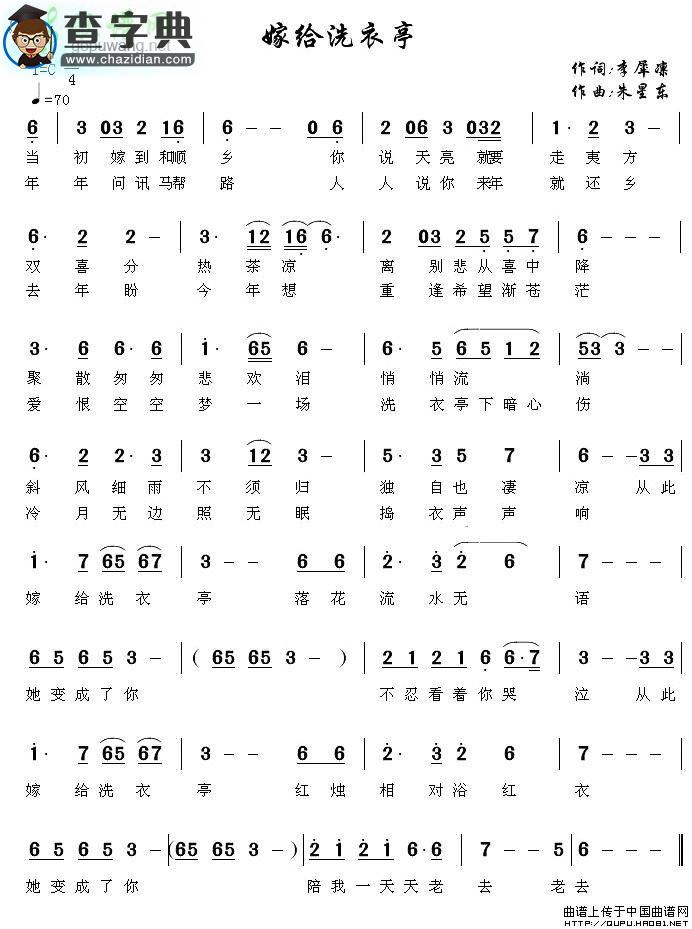 查字典
www.chazidian.com
qupuwang.net
嫁给洗衣亭
1=C 4
作词:李犀凛
作曲:朱星东
=70
6 | 3 03 2 16 | 6 - - 0 6 | 2 06 3 032 | 1· 2 3 - |
当 初 嫁 到 和顺 乡 你 说 天 亮 就要 走 夷 方
年 年 问 讯 马帮 路 人 人 说 你 来年 就 还 乡
6· 2 2 - | 3· 12 16 6· | 2 03 2 5 5 7 | 6 - - - |
双 喜 分 热 茶 凉 离 别 悲 从 喜 中 降
去 年 盼 今 年 想 重 逢 希 望 渐 苍 茫
3· 6 6· 6 | 1· 65 6 - | 6· 5 6 5 1 2 | 53 3 - - |
聚 散 匆 匆 悲 欢 泪 悄 悄 流 淌
爱 恨 空 空 梦 一 场 洗 衣 亭 下 暗 心 伤
6· 2 2· 3 | 3 12 3 - | 5· 3 5 7 | 6 - - 3 3 |
斜 风 细 雨 不 须 归 独 自 也 凄 凉 从 此
冷 月 无 边 照 无 眠 捣 衣 声 声 响
1· 7 65 67 | 3 - - 6 6 | 2· 3 2 6 | 7 - - - |
嫁 给 洗 衣 亭 落 花 流 水 无 语
6 5 6 5 3 - | ( 65 65 3 - ) | 2 1 2 1 6 6·7 | 3 - - 3 3 |
她 变 成 了 你 不 忍 看 着 你 哭 泣 从 此
1· 7 65 67 | 3 - - 6 6 | 2· 3 2 6 | 7 - - - |
嫁 给 洗 衣 亭 红 烛 相 对 浴 红 衣
6 5 6 5 3 - | (65 65 3 - ) | 2 1 2 1 6·6 | 7 - - 5 | 6 - - |
她 变 成 了 你 陪 我 一 天 天 老 去 老 去
曲谱上传于中国曲谱网
HTTP://QUPU.HAO81.NET